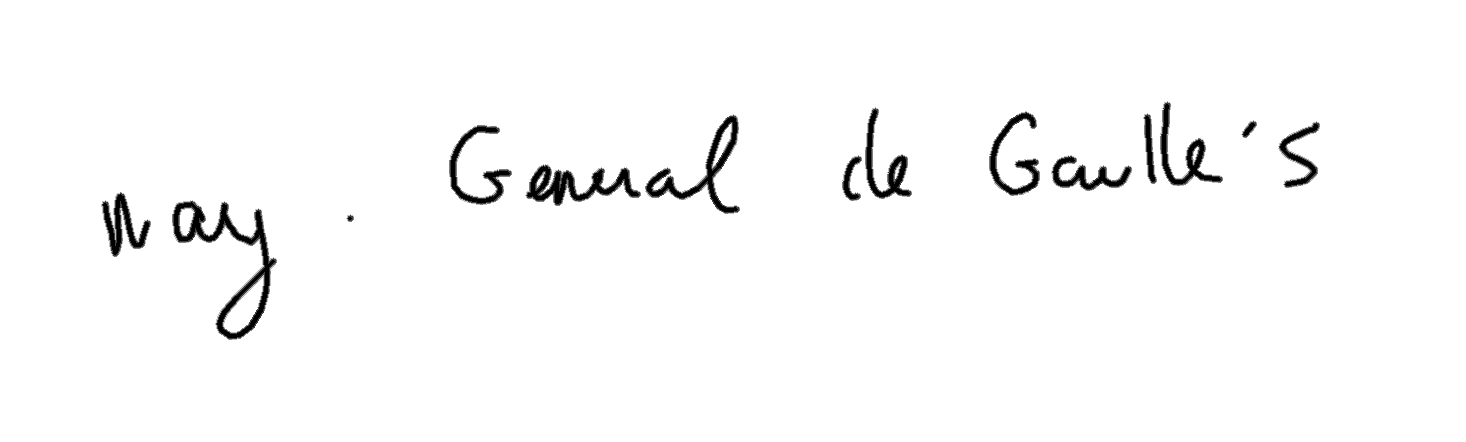 way. General de Gaulle's